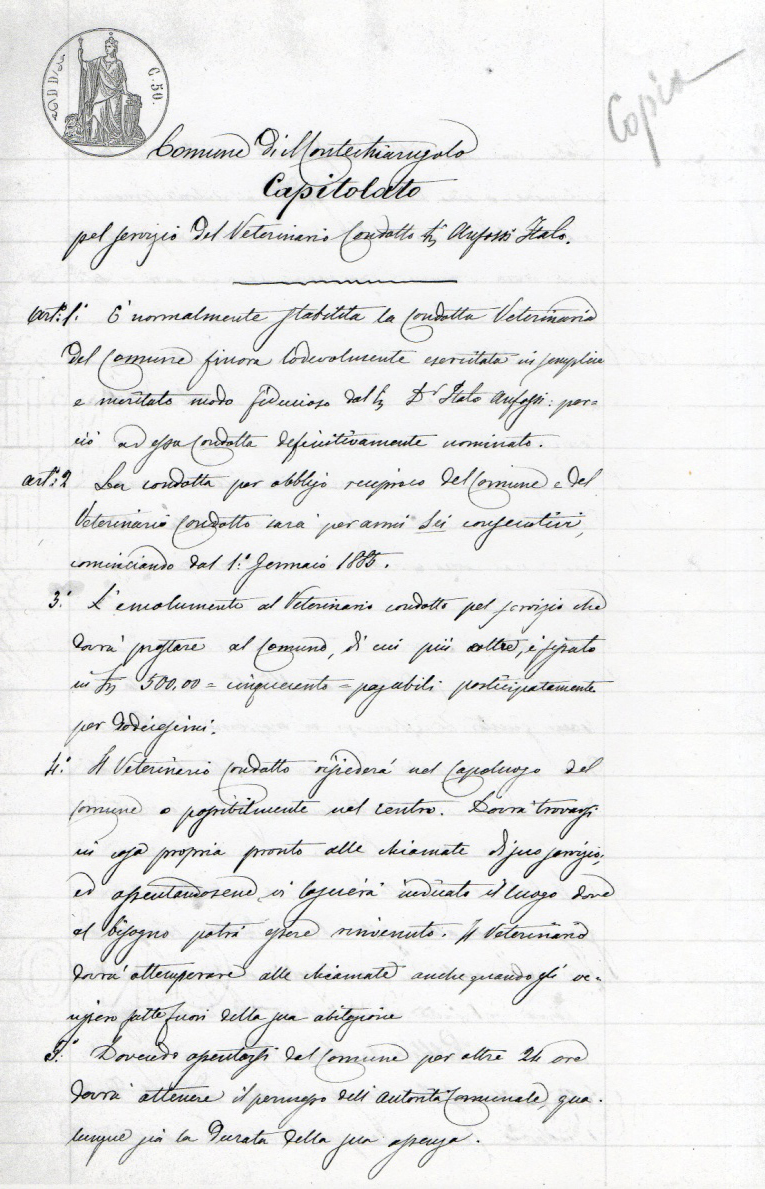 C. 50.
Copia
Comune di Montechiarugolo
Capitolato
pel servizio del Veterinario Condotto Anfossi Italo.
Art.º 1.º È normalmente stabilita la condotta Veterinaria
del Comune finora lodevolmente esercitata in semplice
e meritato modo fiducioso dal Dr Italo Anfossi: per=
ciò ad essa Condotta definitivamente nominato.
art.º 2 La condotta per obbligo reciproco del Comune e del
Veterinario Condotto sarà per anni sei consecutivi,
cominciando dal 1.º Gennaio 1885.
3.º L'emolumento al Veterinario condotto pel servizio che
dovrà prestare al Comune, di cui più oltre, è fissato
in 500,00 = cinquecento = pagabili posticipatamente
per dodicesimi.
4.º Il Veterinario Condotto risiederà nel Capoluogo del
Comune o possibilmente nel centro. Dovrà trovarsi
in casa propria pronto alle chiamate di suo servizio,
ed assentandosene vi lascierà indicato il luogo dove
al bisogno potrà essere rinvenuto. Il Veterinario
dovrà attemperare alle chiamate anche quando gli ve-
nissero fatte fuori della sua abitazione
5.º Dovendo assentarsi dal Comune per oltre 24 ore
dovrà ottenere il permesso dell'Autorità Comunale, qua-
lunque sia la durata della sua assenza.